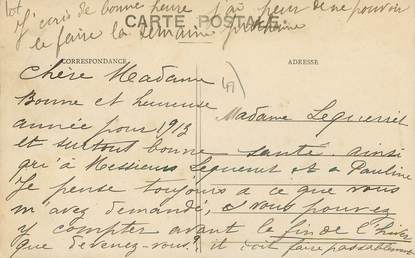 lot
J'écris de bonne heure j'ai peur de ne pouvoir
le faire la semaine prochaine
CARTE POSTALE
CORRESPONDANCE
ADRESSE
Chère Madame
Bonne et heureuse
année pour 1913
et surtout bonne santé, ainsi
qu'à Messieurs Lequerret et a Pauline
Je pense toujours a ce que vous
m'avez demandé, vous pouvez
y compter avant la fin de l'hiver
que devenez-vous? il doit faire passablement
Madame Lequerret